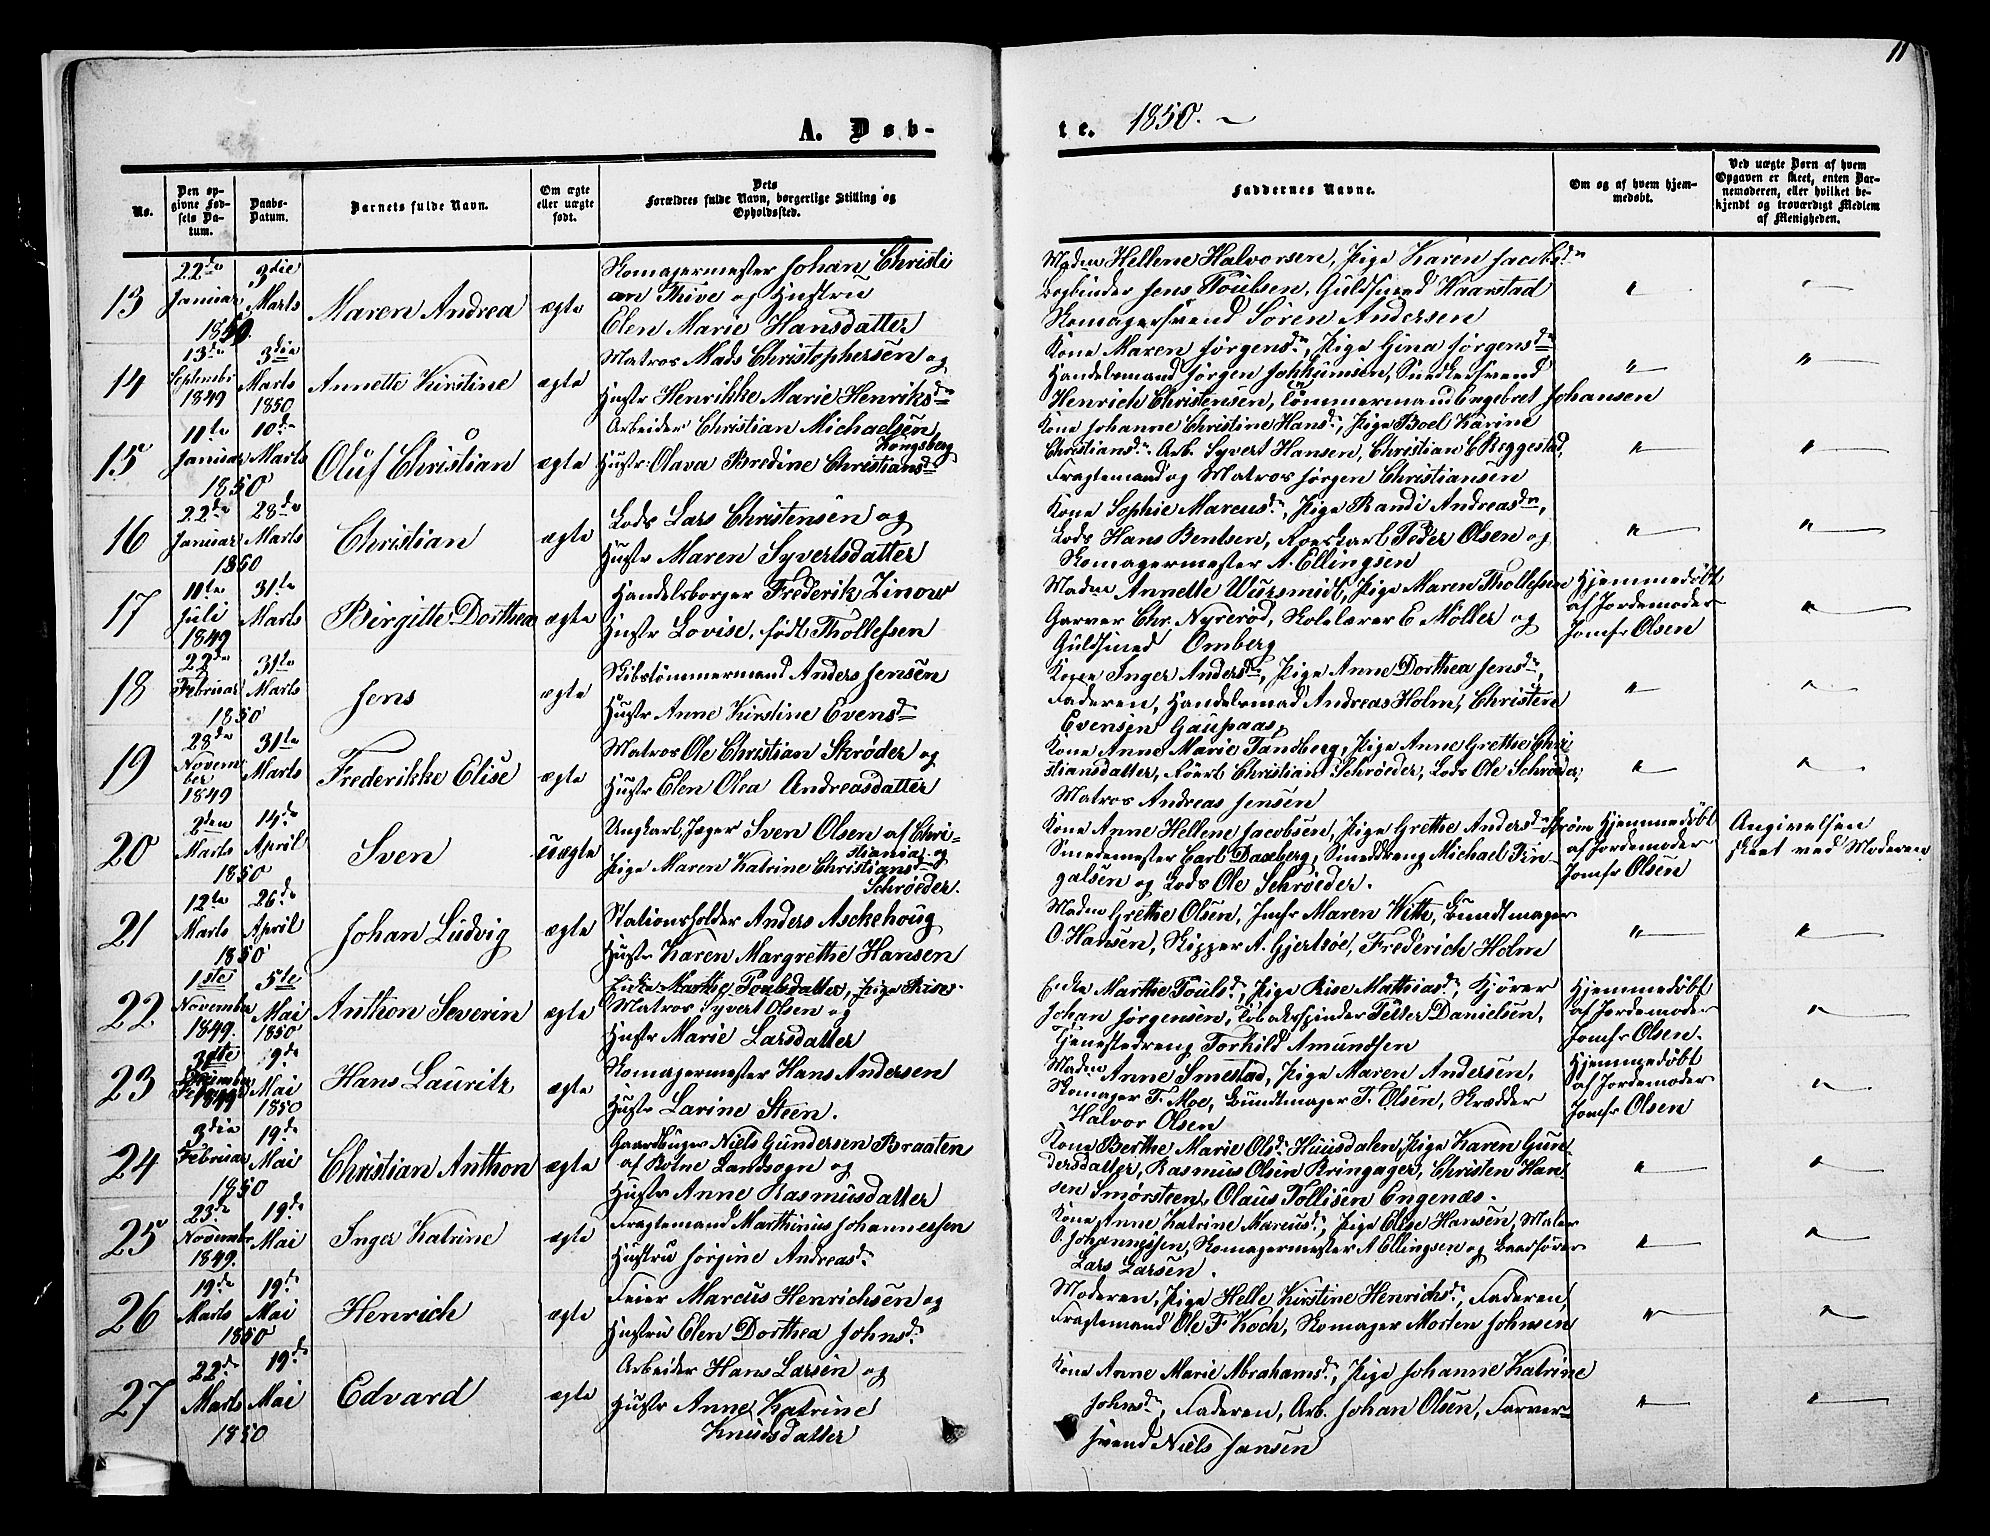 11
A. Døb-
te. 1850. ~
No.
Den op-
givne Fød-
sels Da-
tum.
Daabs-
Datum.
Barnets fulde Navn.
Om ægte
eller uægte
født.
Dets
Forældres fulde Navn, borgerlige Stilling og
Opholdssted.
Faddernes Navne.
Om og af hvem hjem-
medøbt.
Ved uægte Børn af hvem
Opgaven er skeet, enten Bar-
nemoderen, eller hvilket be-
kjendt og troværdigt Medlem
af Menigheden.
13
22de
Januar
1850.
3die
Marts
Maren Andrea
ægte
Skomagermester Johan Christi
an Thive og Hustru
Elen Marie Hansdatter
Madm Hellene Halvorsen, Pige Karen Jacobsdr
Bogbinder Jens Poulsen, Guldsmed Haarstad
Skomagersvend Søren Andersen
"
"
14
13de
Septembr
1849
3die
Marts
1850
Annette Kirstine
ægte
Matros Mads Christophersen og
Hustr Henrikke Marie Henriksdr
Kone Maren Jørgensdr, Pige Gina Jørgensdr
Handelsmand Jørgen Jokkumsen, Snedkersvend
Henrich Christensen, Tømmermand Engebret Johansen
"
"
15
11te
Januar
1850
10de
Marts
Oluf Christian
ægte
Arbeider Christian Michaelsen
Kongsberg
Hustr Olava Bredine Christiansdr
Kone Johanne Christine Hansdr, Pige Boel Karine
Christiansdr. Arb. Syvert Hansen, Christian C Reggestad,
Fragtemand og Matros Jørgen Christiansen
"
"
16
22de
Januar
1850
28de
Marts
Christian
ægte
Lods Lars Christensen og
Hustr Maren Syvertsdatter
Kone Sophie Marcusdr, Pige Randi Andreasdr,
Lods Hans Bentsen, Roerskarl Peder Olsen og
Skomagermester A. Ellingsen
"
"
17
11te
Juli
1849
31te
Marts
Birgitte Dorthea
ægte
Handelsborger Frederik Zinow
Hustr Lovise, født Thollessen
Madm Annette Wurmsmidt, Pige Maren Thollessen
Garver Chr. Nyrerød, Skolelærer E Møller og
Guldsmed Omberg
Hjemmedøbt
af Jordemoder
Jomfr Olsen
"
18
22de
Februar
1850
31te
Marts
Jens
ægte
Skibstømmermand Anders Jensen
Hustr Anne Kirstine Evensdr
Kone Inger Andersdr, Pige Anne Dorthea Jensdr,
Faderen, Handelsmad Andreas Holm, Christen
Evensen Gaupaas,
"
"
19
28de
Novem-
ber
1849
31te
Marts
Frederikke Elise
ægte
Matros Ole Christian Skrøder og
Hustr Elen Olea Andreasdatter
Kone Anne Marie Tandberg, Pige Anne Grethe Chri
stiansdatter, Christian Schrøeder, Lods Ole Schrøder,
Matros Andreas Jensen
"
"
20
2den
Marts
1850
14de
April
Sven
uægte
Ungkarl, Jæger Sven Olsen af Chri-
stiania og
Pige Maren Katrine Christiansdr
Schrøeder.
Kone Anne Hellene Jacobsen, Pige Grethe Andersdr Strøm
Smedemester Carl Daxberg, Smeddreng Michael In-
galsen og Lods Ole Schrøeder.
Hjemmedøbt
af Jordemoder
Jomfr Olsen
Angivelsen
skeet ved Moderen
21
12te
Marts
1850
26de
April
Johan Ludvig
ægte
Stationsholder Anders Askehoug
Hustr Karen Margrethe Hansen
Madm Grethe Olsen, Jmfr Maren With, Bundtmager
O. Hansen, Skipper A. Gjertsøe, Frederich Holm
"
"
22
1ste
Novembr
1849.
5te
Mai
1850
Anthon Severin
ægte
Enke Marthe Poulsdatter, Pige Rise
Matros Syvert Olsen og
Hustr Marie Larsdatter
Enke Marthe Poulsdr, Pige Rise Mathiasdr, Kjører
Johan Jørgensen, Tobakspinder Petter Danielsen,
Tjenestedreng Torkild Amundsen
Hjemmedøbt
af Jordemoder
Jomfr Olsen.
"
23
1849
9de
Mai
1850
Hans Lauritz
ægte
Skomagermester Hans Andersen
Hustr Larine Steen.
Madm Anne Smestad, Pige Maren Andersen,
Skomager T. Moe, Bundtmager T. Olsen, Skrædder
Halvor Olsen
Hjemmedøbt
af Jordemoder
Jomfr Olsen
"
24
3die
Februar
1850
19de
Mai
Christian Anthon
ægte
Gaardbruger Niels Gundersen Braaten
af Holme Landsogn og
Hustr Anne Rasmusdatter
Kone Berthe Marie Olsdr Huusdalen, Pige Karen Gun-
dersdatter, Rasmus Olsen Bringager, Christen Han-
sen Smørsteen, Olaus Tollisen Engenæs.
"
"
25
23de
Novembr
1849.
19de
Mai
Inger Katrine
ægte
Fragtemand Marthinus Johannessen
Hustru Jørgine Andreasdr
Kone Anne Katrine Marcusdr, Pige Elise Hansen, Maler
O. Johannesen, Skomagermester A Ellingsen og Baadfører
Lars Larsen.
"
"
26
19de
Marts
1850
19de
Mai
Henrich
ægte
Feier Marcus Henrichsen og
Hustru Elen Dorthea Johnsdr
Moderen, Pige Helle Kirstine Henrichsdr, Faderen,
Fragtemand Ole F Koch, Skomager Morten Johnsen
"
"
27
22de
Marts
1850
19de
Mai
Edvard
ægte
Arbeider Hans Larsen og
Hustr Anne Katrine
Knudsdatter
Kone Anne Marie Abrahamsdr, Pige Johanne Katrine
Johnsdr, Faderen, Arb. Johan Olsen, Farver-
svend Niels Jansen
"
"